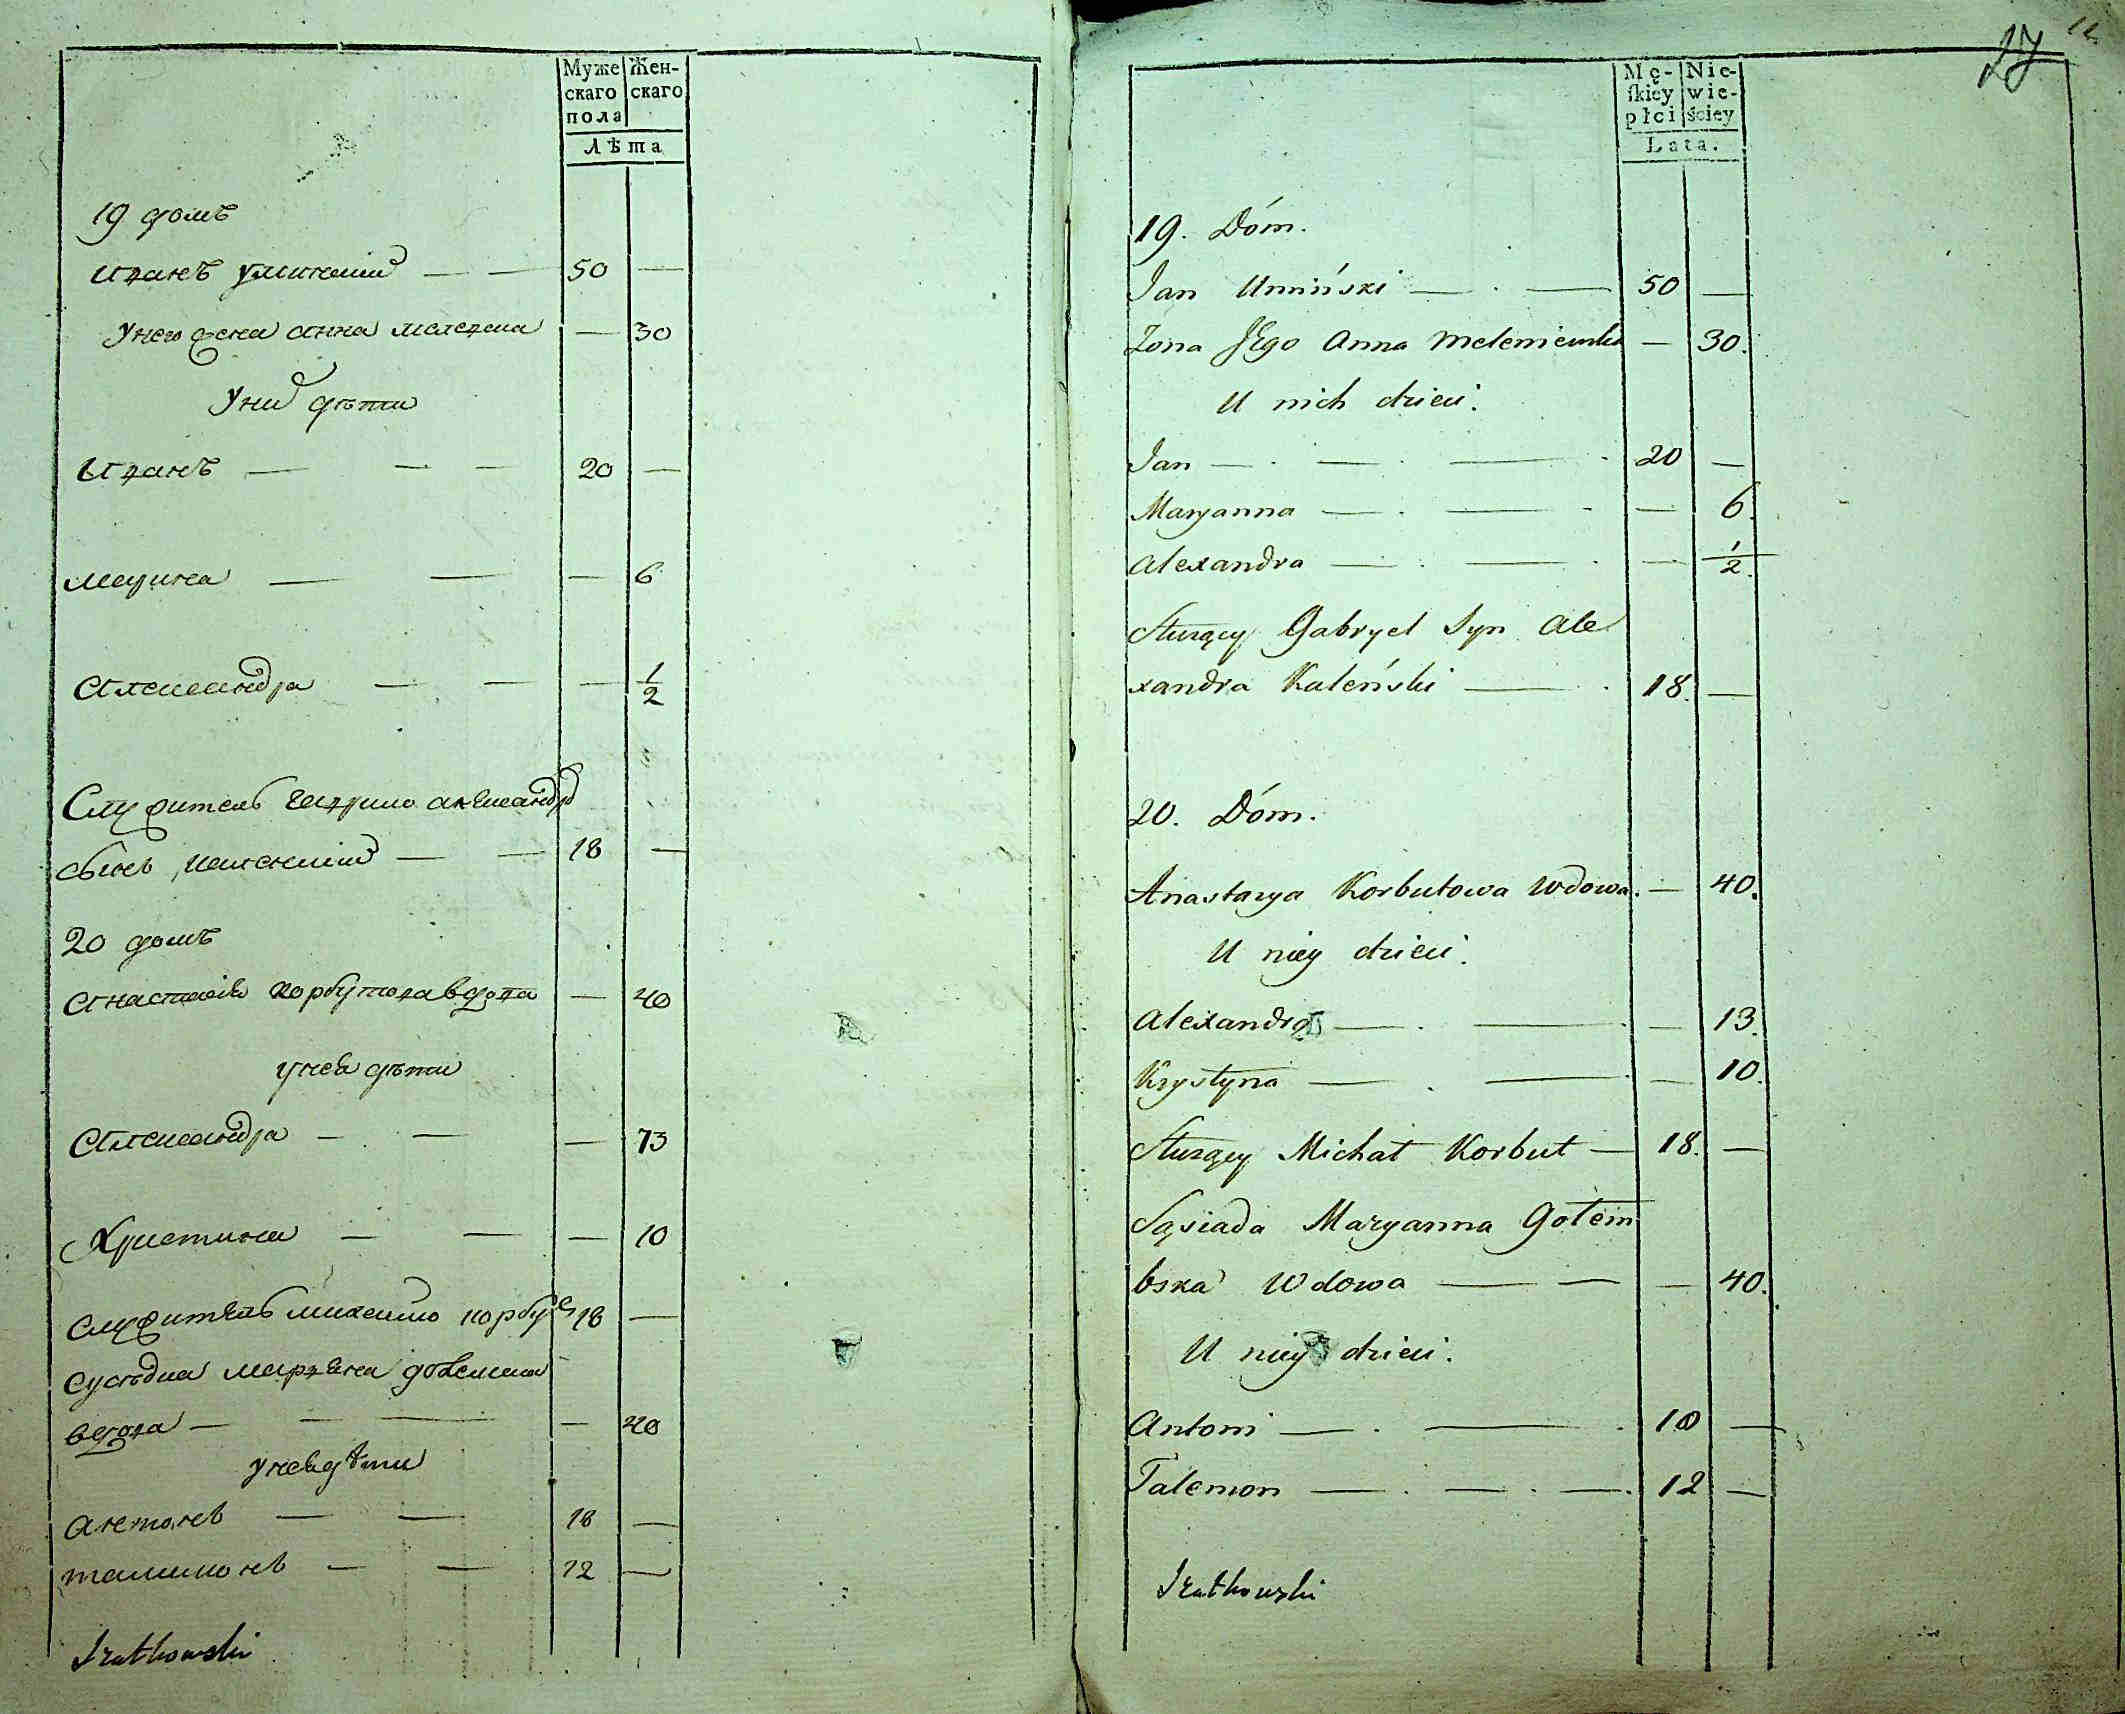 Муже Жен-
скаго скаго
пола
Лѣта
19 домъ
Иванъ Уминский — — 50 —
У него жена Анна — 30
У них дети
Иванъ — — — 20 —
Марина — — — 6
Александра — — — 1/2
Служитель Гаврило Александра
сынъ Каленский — — 18 —
20 домъ
Анастасия Корбутова вдова — 40
У нея дети
Александра — — — 13
Христина — — — 10
Служитель Михайло 18 —
Суседка Марьяна
вдова — — — — 40
У нея дѣти
Антонъ — — 18 —
Талимонъ — — 12 —
27
Mę- Nie-
skiey wie-
płci ściey
Lata.
19. Dóm.
Jan Umiński — . — 50 —
Żona JEgo Anna — 30.
U nich dzieci.
Jan — . — . — . 20 —
Maryanna — . — - — 6.
Alexandra — . — . — 1/2.
Służący Gabryel Syn Ale
xandra Kaleński — . 18. —
20. Dóm.
Anastazya Korbutowa Wdowa. — 40.
U niey dzieci.
Alexandra — . — . — 13.
Krystyna — . — — 10.
Służący Michał Korbut — 18. —
Sąsiada Maryanna Gołem
bska Wdowa — — — 40.
U niey dzieci.
Antoni — . — . 18 —
Talemon — . — . — . 12 —